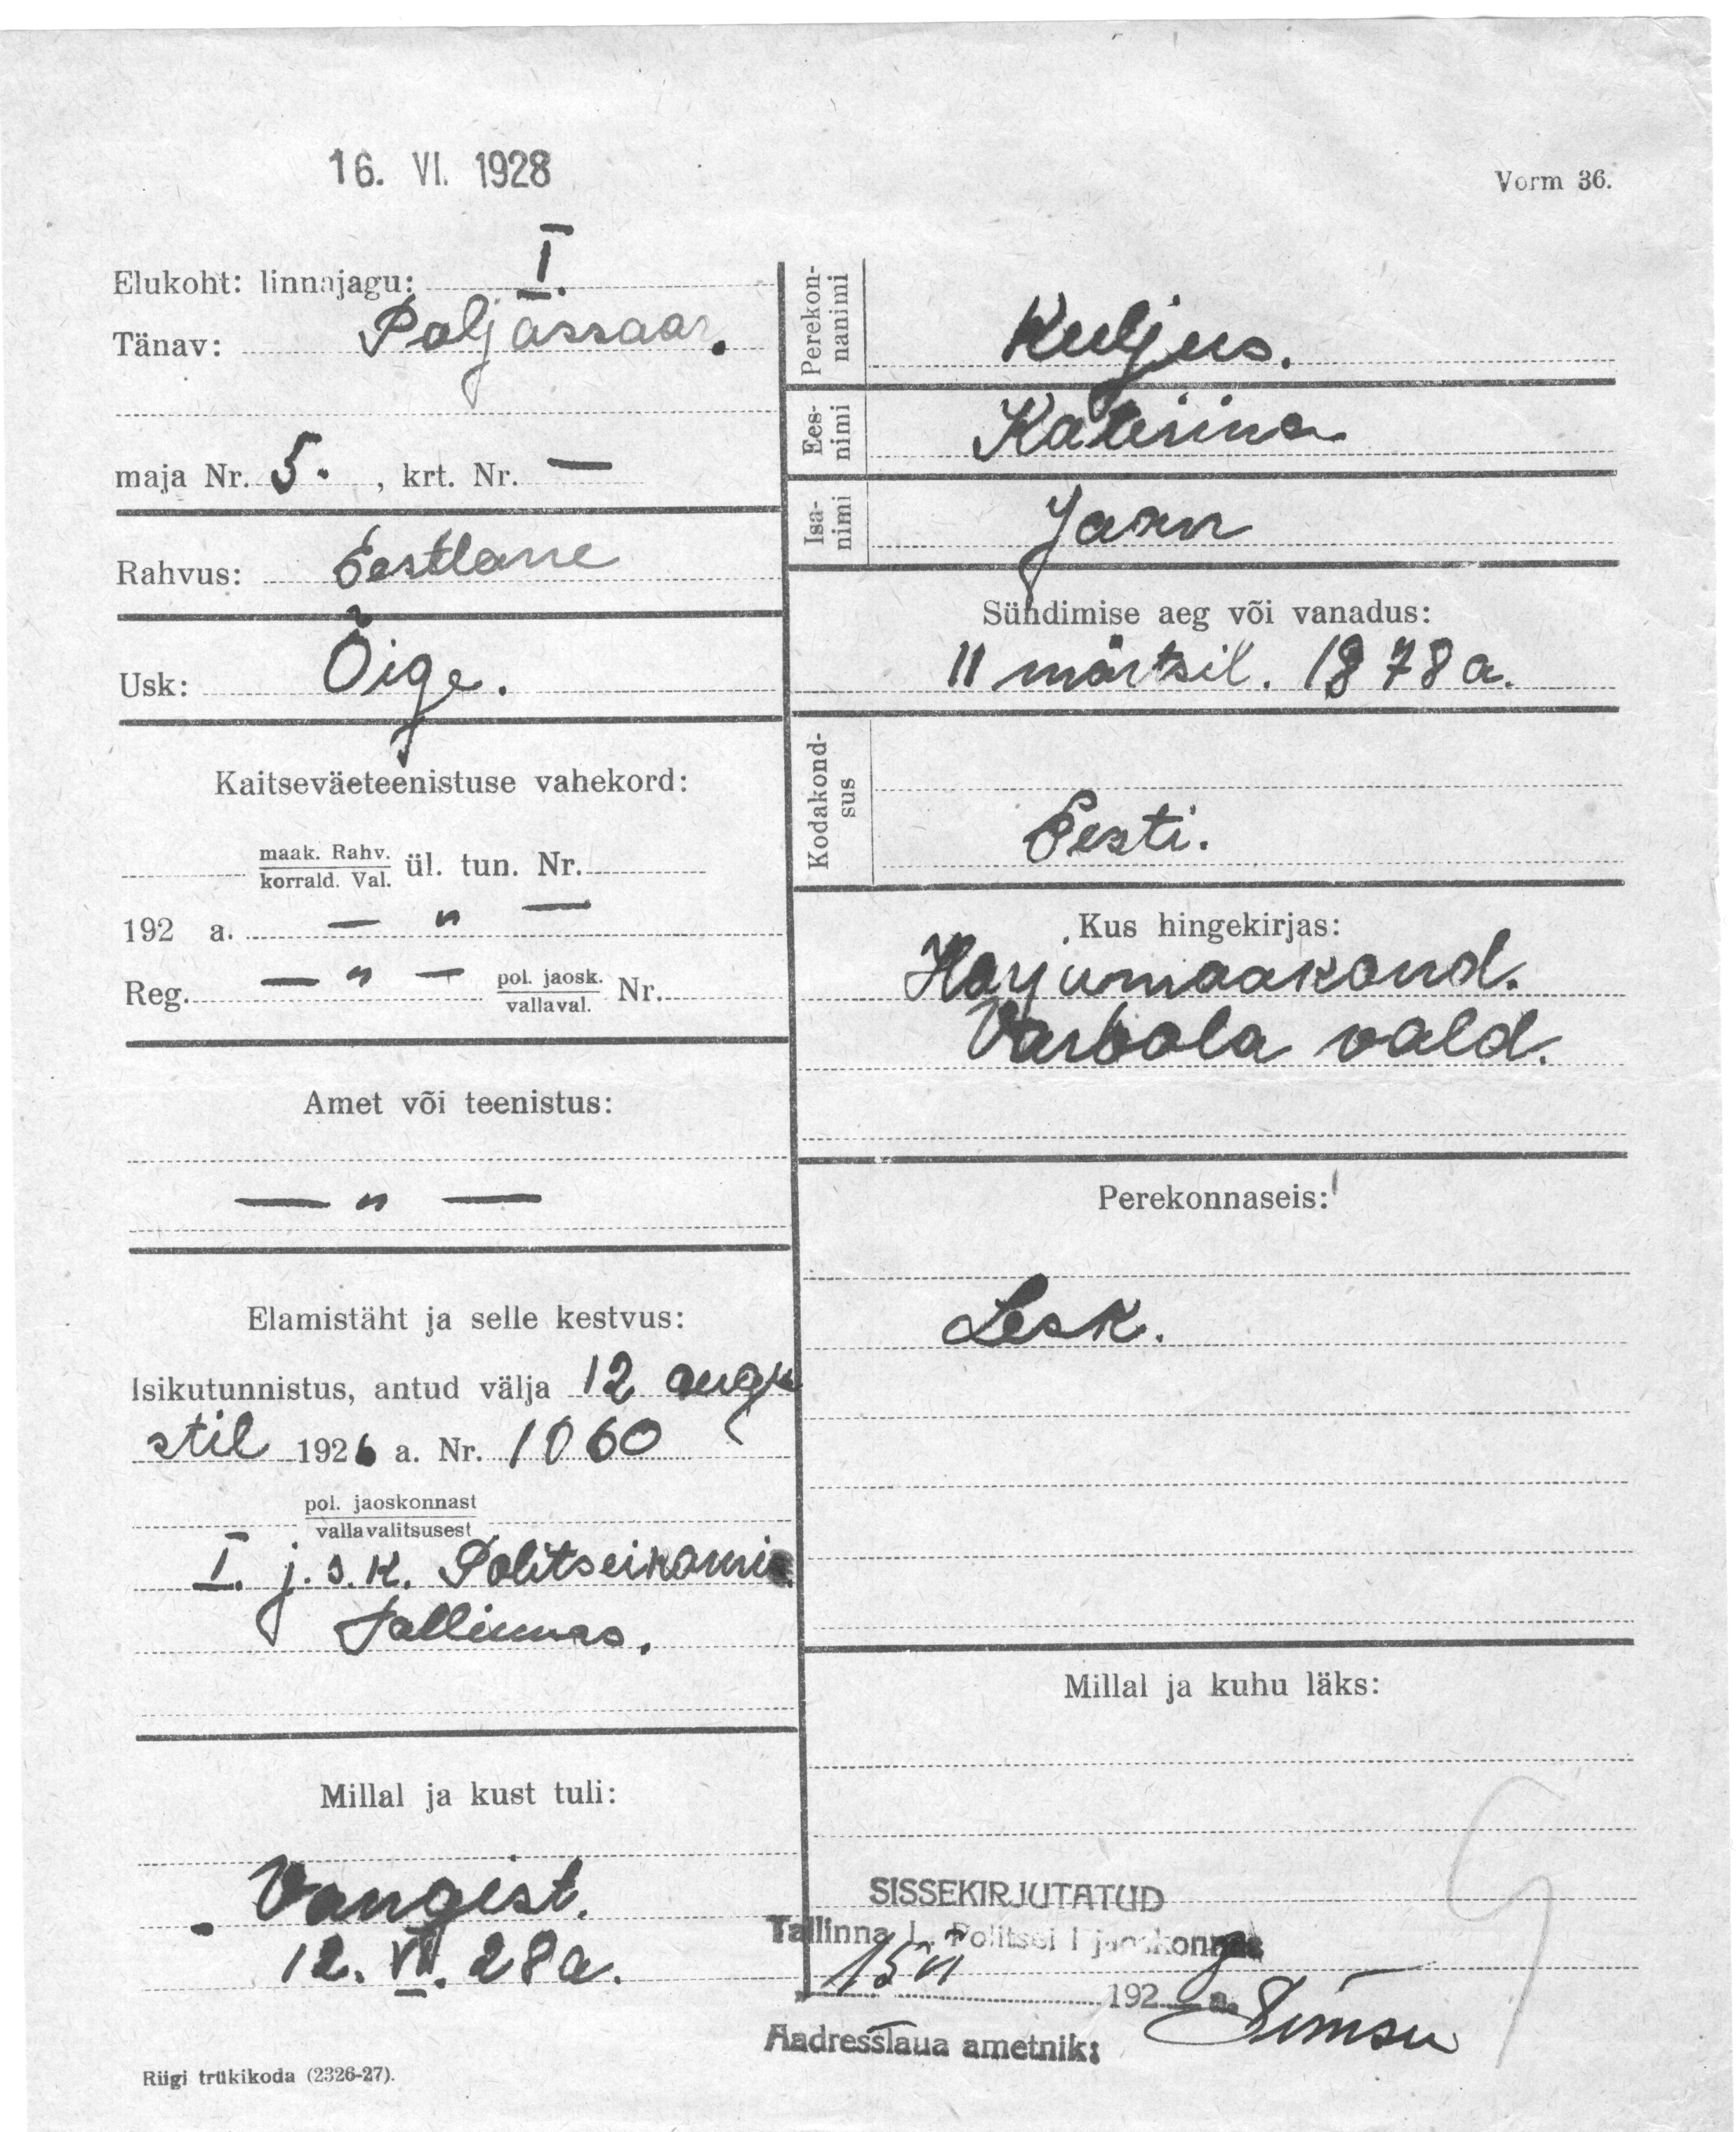 16. VI. 1928
Vorm 36.
Elukoht: linnajagu: I.
Tänav: Paljassaar.
maja Nr. 5. , krt. Nr. —
Rahvus: Eestlane
Usk: Õige.
Kaitseväeteenistuse vahekord:
maak. Rahv.
korrald. Val. ül. tun. Nr.
192 a. — " —
Reg. — " — pol. jaosk.
vallaval. Nr.
Amet või teenistus:
— " —
Elamistäht ja selle kestvus:
Isikutunnistus, antud välja 12 augu
stil 1926 a. Nr. 1060
pol. jaoskonnast
vallavalitsusest
I. j.s.k. Politseikomis
Tallinnas.
Millal ja kust tuli:
Vangist.
12. VI. 28 a.
Riigi trükikoda (2326-27).
Perekon-
nanimi Kuljus.
Ees-
nimi Katerina
Isa-
nimi Jaan
Sündimise aeg või vanadus:
11 märtsil. 1878 a.
Kodakond-
sus Eesti.
Kus hingekirjas:
Harjumaakond.
Varbola vald.
Perekonnaseis:
Lesk.
Millal ja kuhu läks:
SISSEKIRJUTATUD
Tallinna L. Politsei I jaoskonnas
192 a.
Aadresslaua ametnik: